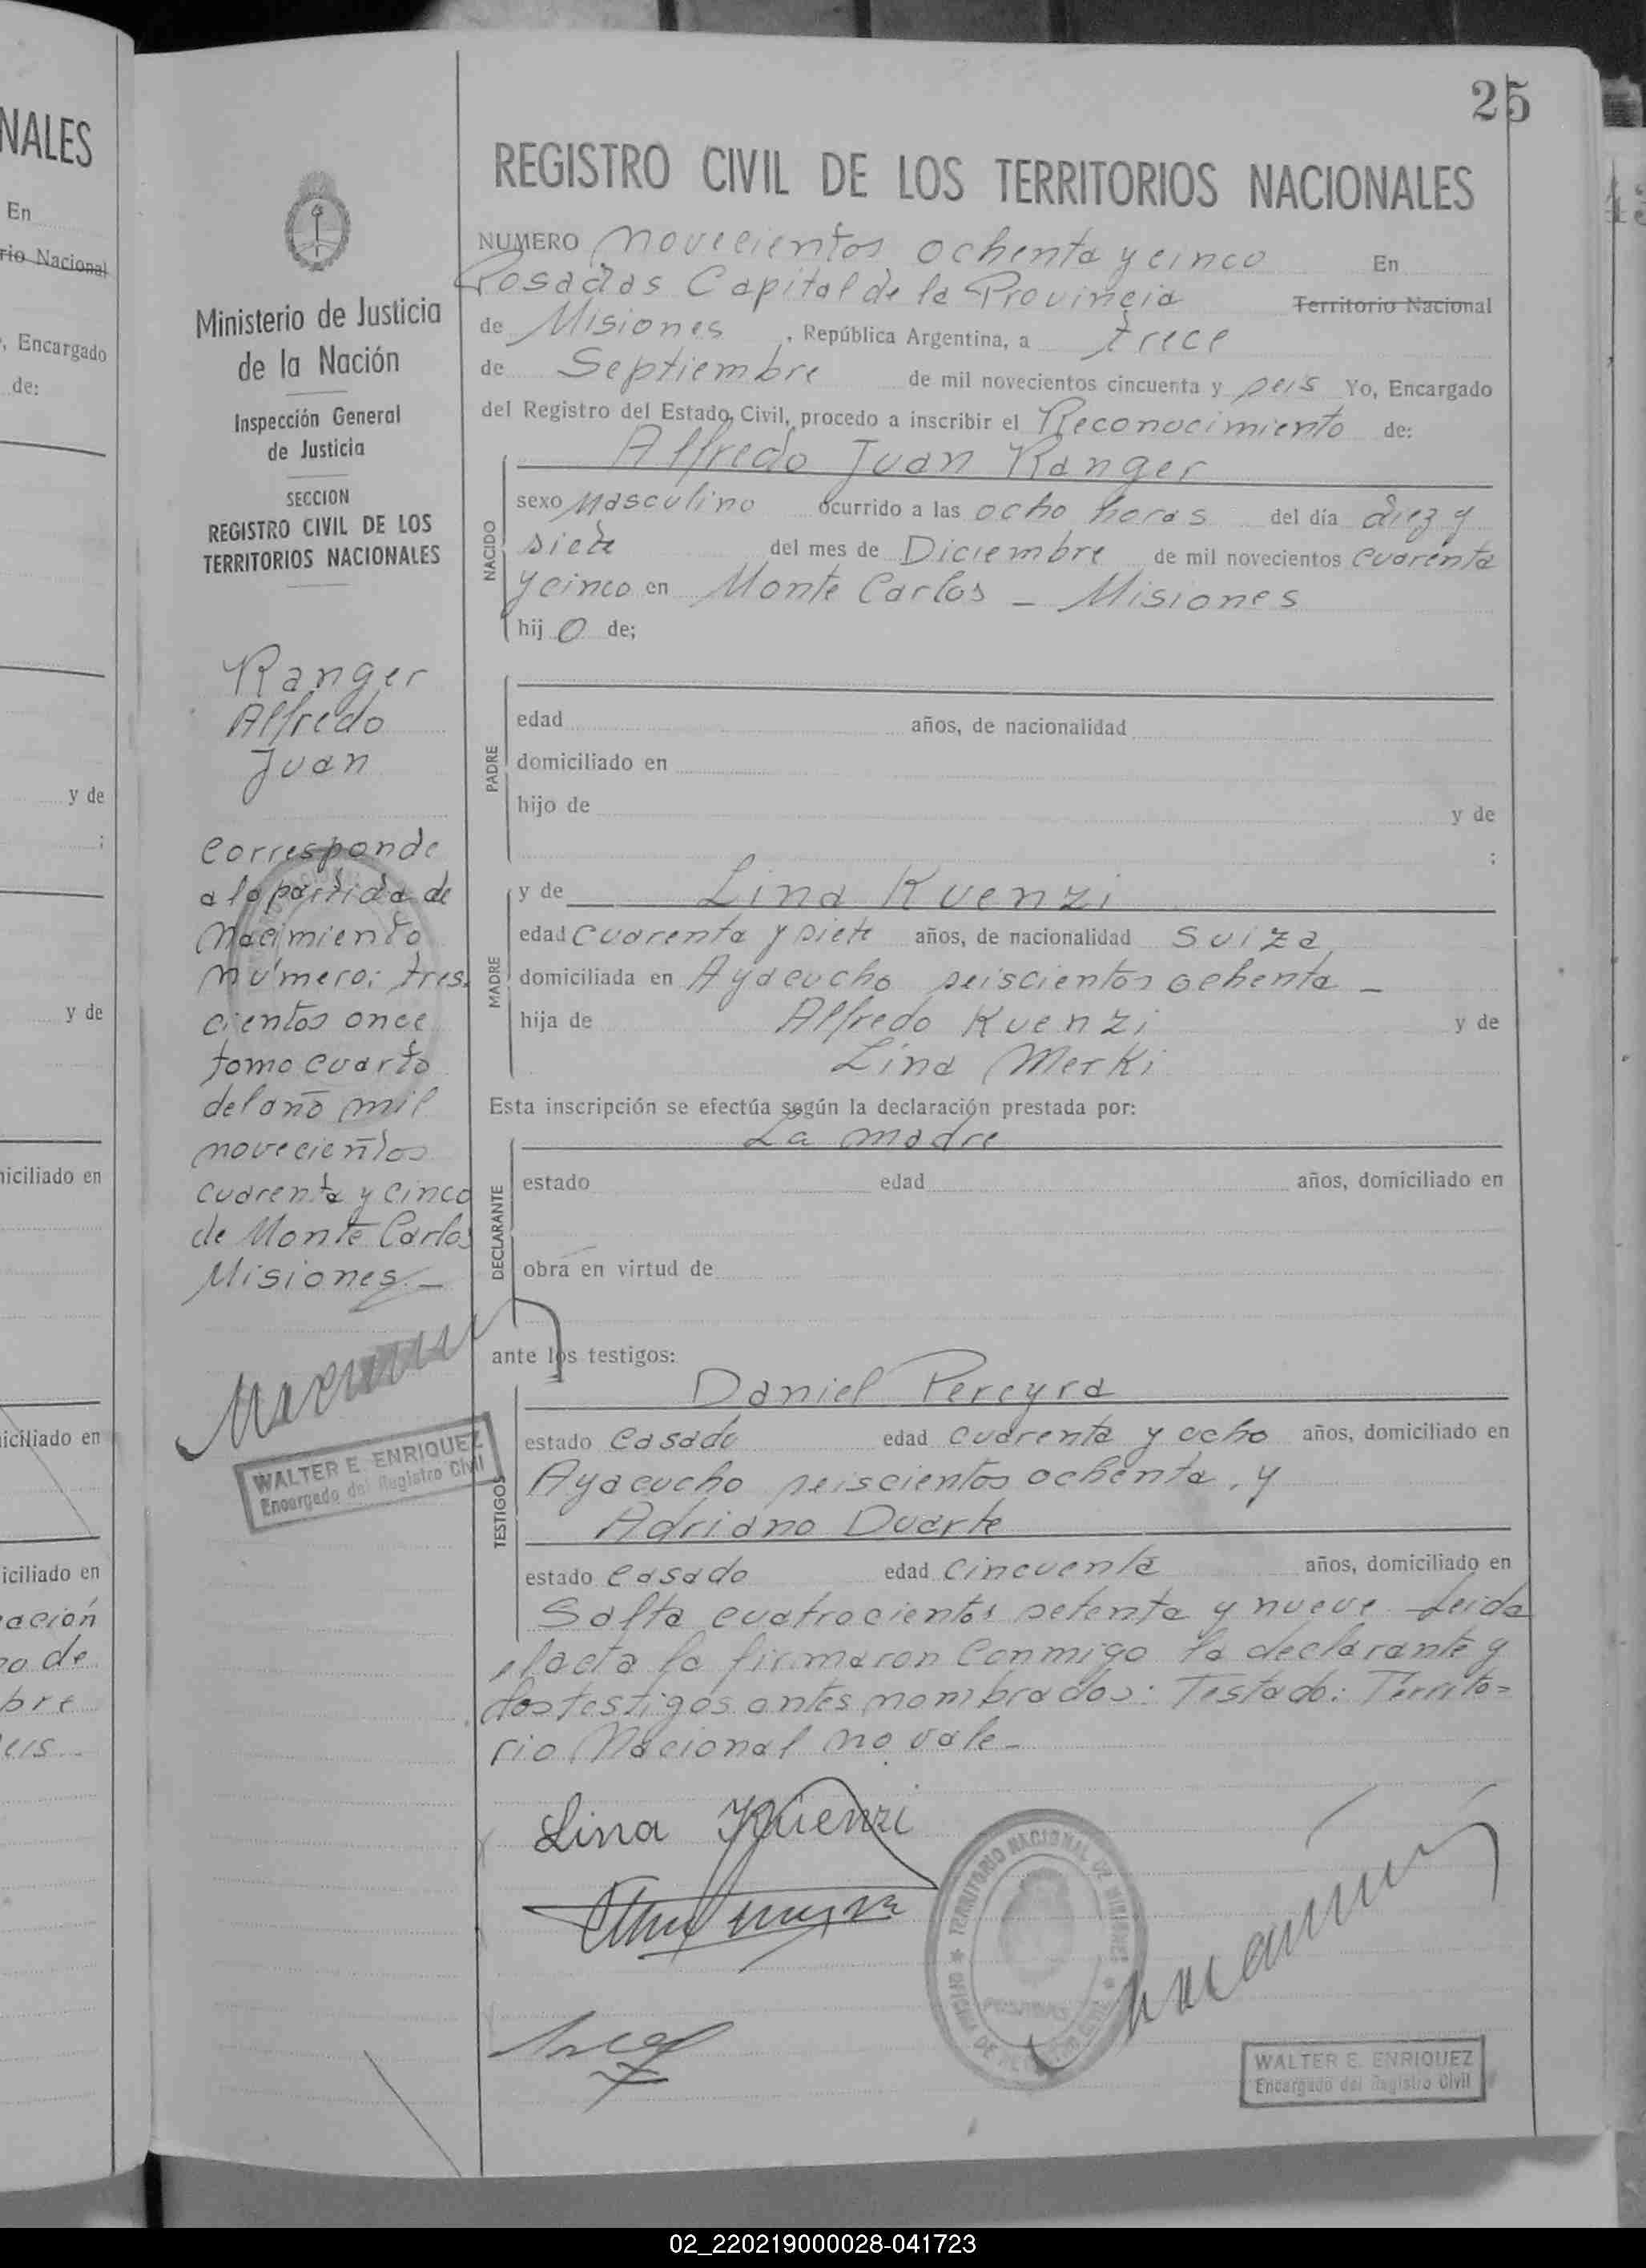 NALES
En
rio Nacional
, Encargado
de:
y de
;
y de
iciliado en
iciliado en
iciliado en
ación
o de
bre
eis
25
Ministerio de Justicia
de la Nación
Inspección General
de Justicia
SECCION
REGISTRO CIVIL DE LOS
TERRITORIOS NACIONALES
Ranger
Alfredo
Juan
Corresponde
a la partida de
Nacimiento
número: tres-
cientos once
tomo cuarto
del año mil
novecientos
cuarenta y cinco
de Monte Carlos
Misiones.—
WALTER E. ENRIQUEZ
Encargado del Registro Civil
REGISTRO CIVIL DE LOS TERRITORIOS NACIONALES
NUMERO novecientos ochenta y cinco En
Posadas Capital de la Provincia Territorio Nacional
de Misiones, República Argentina, a trece
de Septiembre de mil novecientos cincuenta y seis Yo, Encargado
del Registro del Estado Civil, procedo a inscribir el Reconocimiento de:
Alfredo Juan Ranger
NACIDO
sexo Masculino ocurrido a las ocho horas del día diez y
siete del mes de Diciembre de mil novecientos cuarenta
y cinco en Monte Carlos — Misiones
hij o de;
PADRE
edad años, de nacionalidad
domiciliado en
hijo de y de
;
MADRE
y de Lina Kuenzi
edad cuarenta y siete años, de nacionalidad Suiza
domiciliada en Ayacucho seiscientos ochenta —
hija de Alfredo Kuenzi y de
Lina Merki
Esta inscripción se efectúa según la declaración prestada por:
La madre
DECLARANTE
estado edad años, domiciliado en
obra en virtud de
ante los testigos:
TESTIGOS
Daniel Pereyra
estado Casado edad cuarenta y ocho años, domiciliado en
Ayacucho seiscientos ochenta, y
Adriano Duarte
estado Casado edad cincuenta años, domiciliado en
Salta cuatrocientos setenta y nueve Leida
el acta la firmaron conmigo la declarante y
los testigos antes nombrados: Testado: Territo=
rio Nacional no vale—
Lina Küenzi
TERRITORIO NACIONAL DE MISIONES
OFICINA DE REGISTRO CIVIL
POSADAS
WALTER E. ENRIQUEZ
Encargado del Registro Civil
02_220219000028-041723